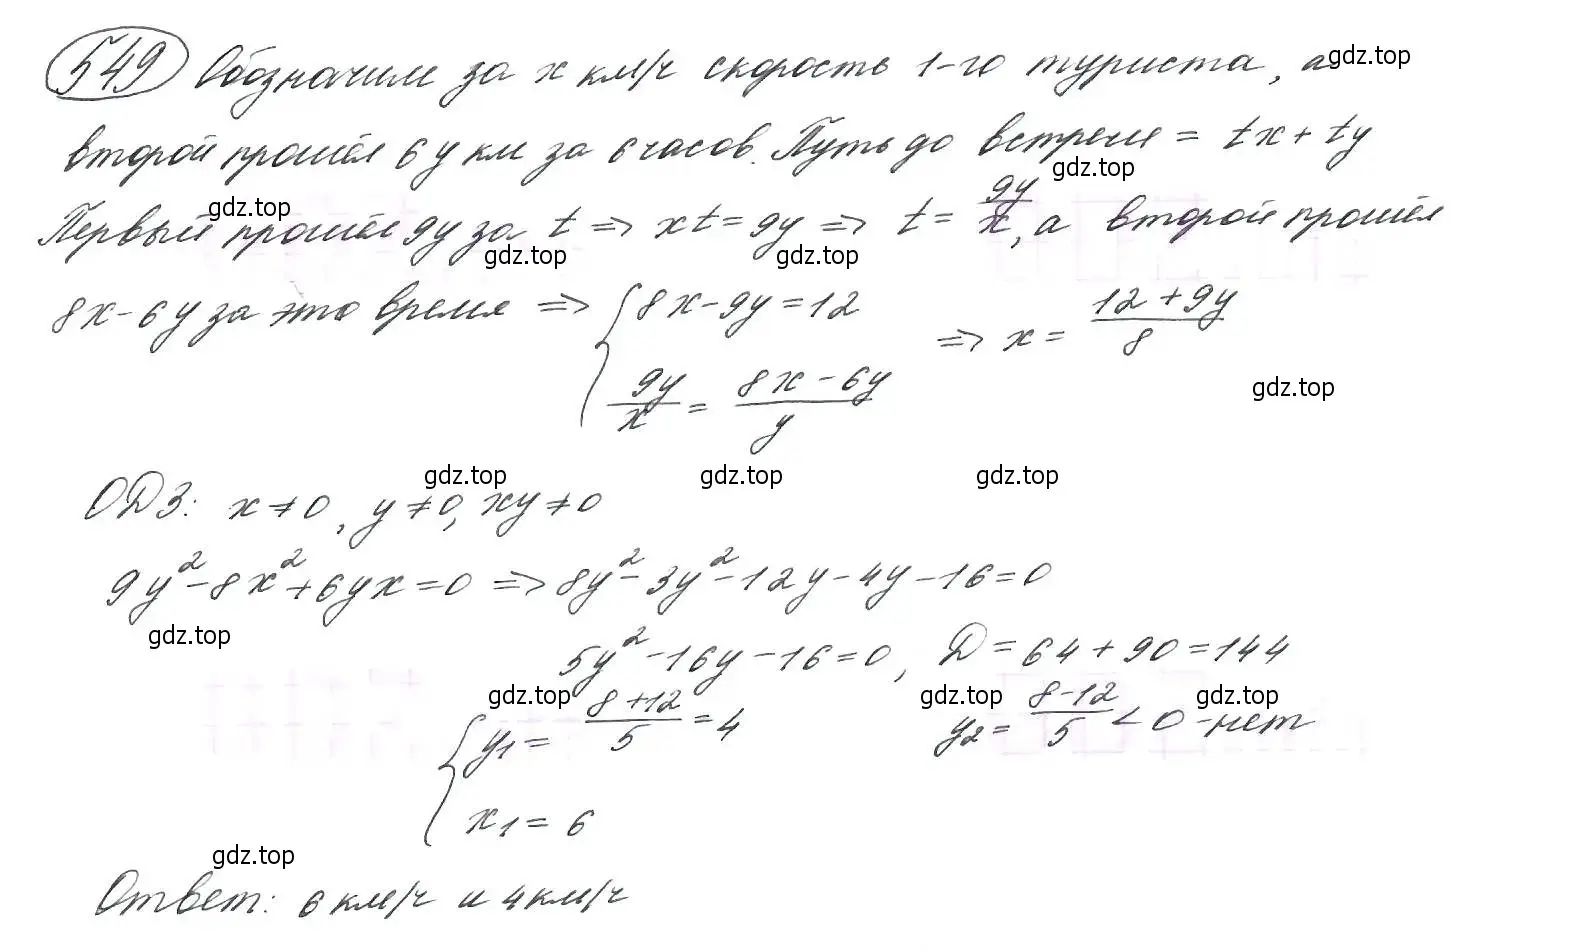 549 Обозначим за x км/ч скорость 1-го туриста, а gdz.top
второй прошёл 6y км за 6 часов. Путь до встречи = tx + ty
gdz.top
gdz.top
Первый прошёл 9y за t => xt = 9y => t = 9y/x, а второй прошёл
gdz.top gdz.top
8x - 6y за это время => { 8x - 9y = 12 => x = (12 + 9y)/8
9y/x = (8x - 6y)/y
gdz.top
gdz.top gdz.top gdz.top
ОДЗ: x ≠ 0, y ≠ 0, xy ≠ 0
9y² - 8x² + 6yx = 0 => 8y² - 3y² - 12y - 4y - 16 = 0
gdz.top
5y² - 16y - 16 = 0, D = 64 + 90 = 144
gdz.top gdz.top gdz.top
{ y₁ = (8 + 12)/5 = 4 y₂ = (8 - 12)/5 < 0 - нет
x₁ = 6
gdz.top
Ответ: 6 км/ч и 4 км/ч